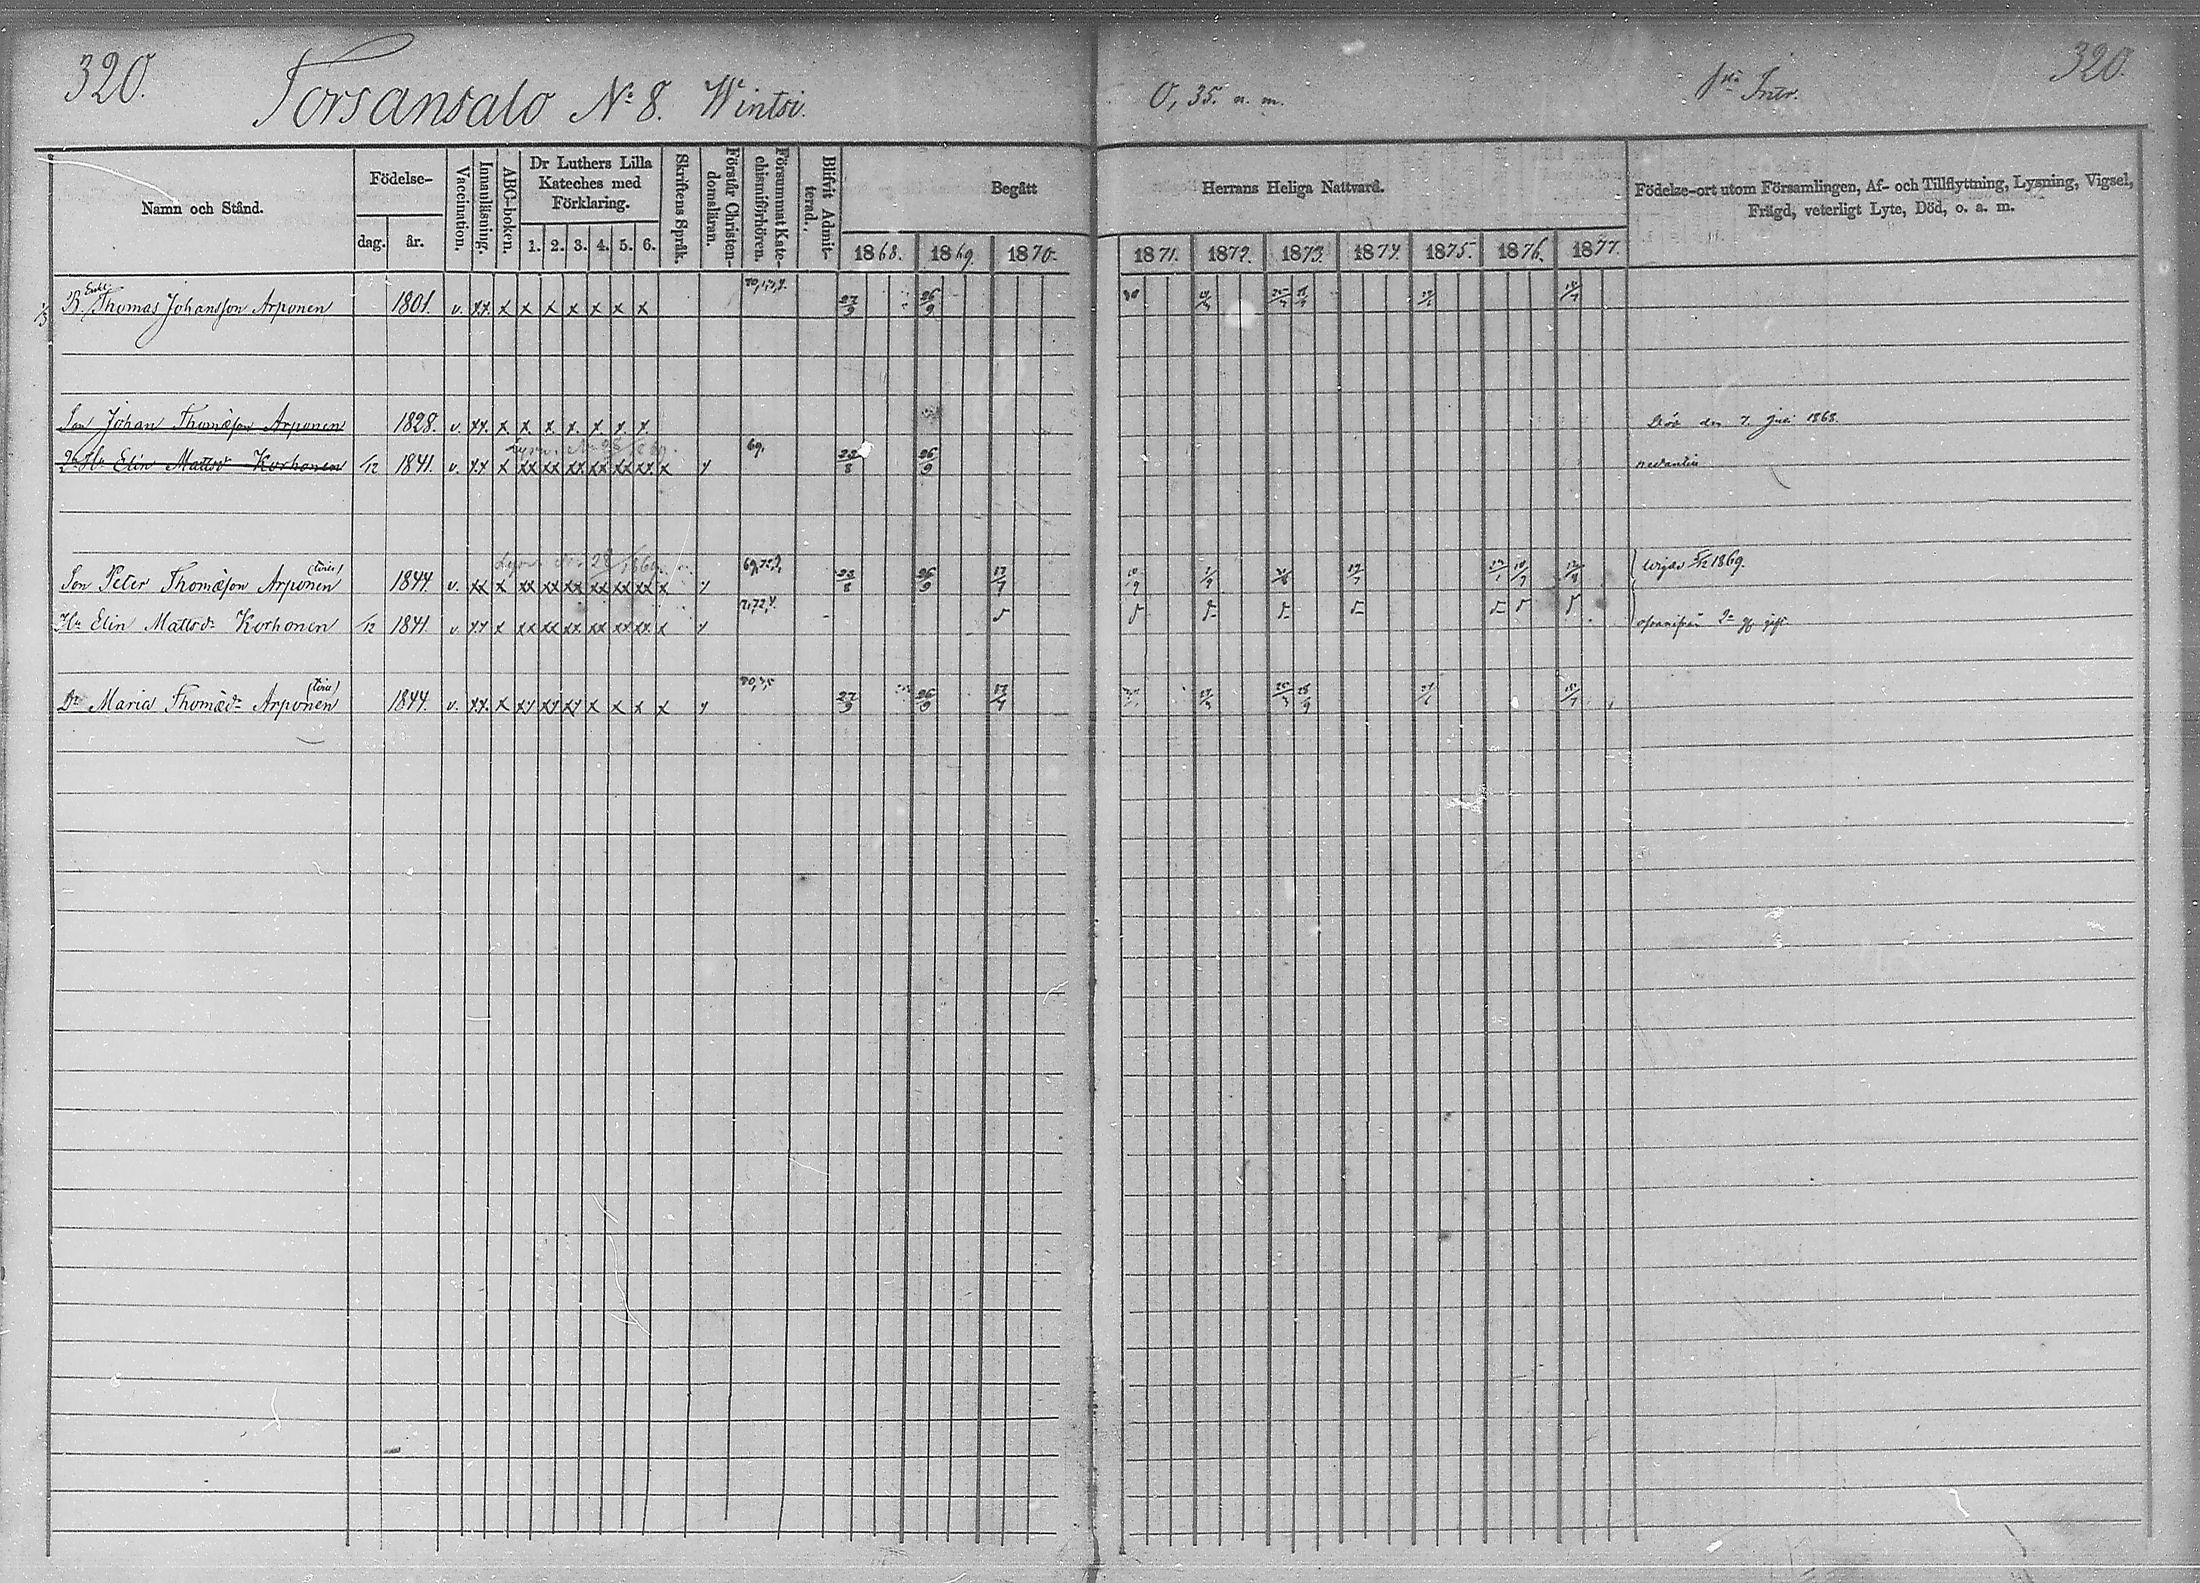 320.
Torsansalo No 8. Wintsi.
O, 35. a. m.
Intr.
320.
Namn och Stånd.
Födelse-
dag.
år.
Vaccination.
Innanläsning.
ABC-boken.
Dr Luthers Lilla
Kateches med
Förklaring.
1. 2. 3. 4. 5. 6.
Skriftens Språk.
Förstår Christen-
domsläran.
Försummat Kate-
chismiförhören.
Blifvit Admit-
terad.
Begått
Herrans Heliga Nattvard.
1868. 1869. 1870. 1871. 1872. 1873. 1874. 1875. 1876. 1877.
Födelse-ort utom Församlingen, Af- och Tillflyttning, Lysning, Vigsel,
Frägd, veterligt Lyte, Död, o. a. m.
B. Enkl. Thomas Johansson Arponen 1801. v. xx. x x x x x x x 27/9 26/9
Son Johan Thomæson Arponen 1828. v. xx. x x. x. x. x. x. x. Död den 7. Juli 1868.
2. Hu Elin Mattsdr Korhonen 1/12 1841. v. xx x xx xx xx xx xx xx x y 69, 23/8 26/9 nedanför
Son Peter Thomæson Arponen 1844. v. xx x xx xx xx xx xx xx x y 23/8 26/9 17/7 wigde 5/12 1869.
Hu Elin Mattsdr Korhonen 1/12 1841. v. xx x xx xx xx xx xx xx x y 2 gg gift
Dr Maria Thomædr Arponen 1844. v. xx. x xx xx xx x x x x y 27/9 26/9 17/7